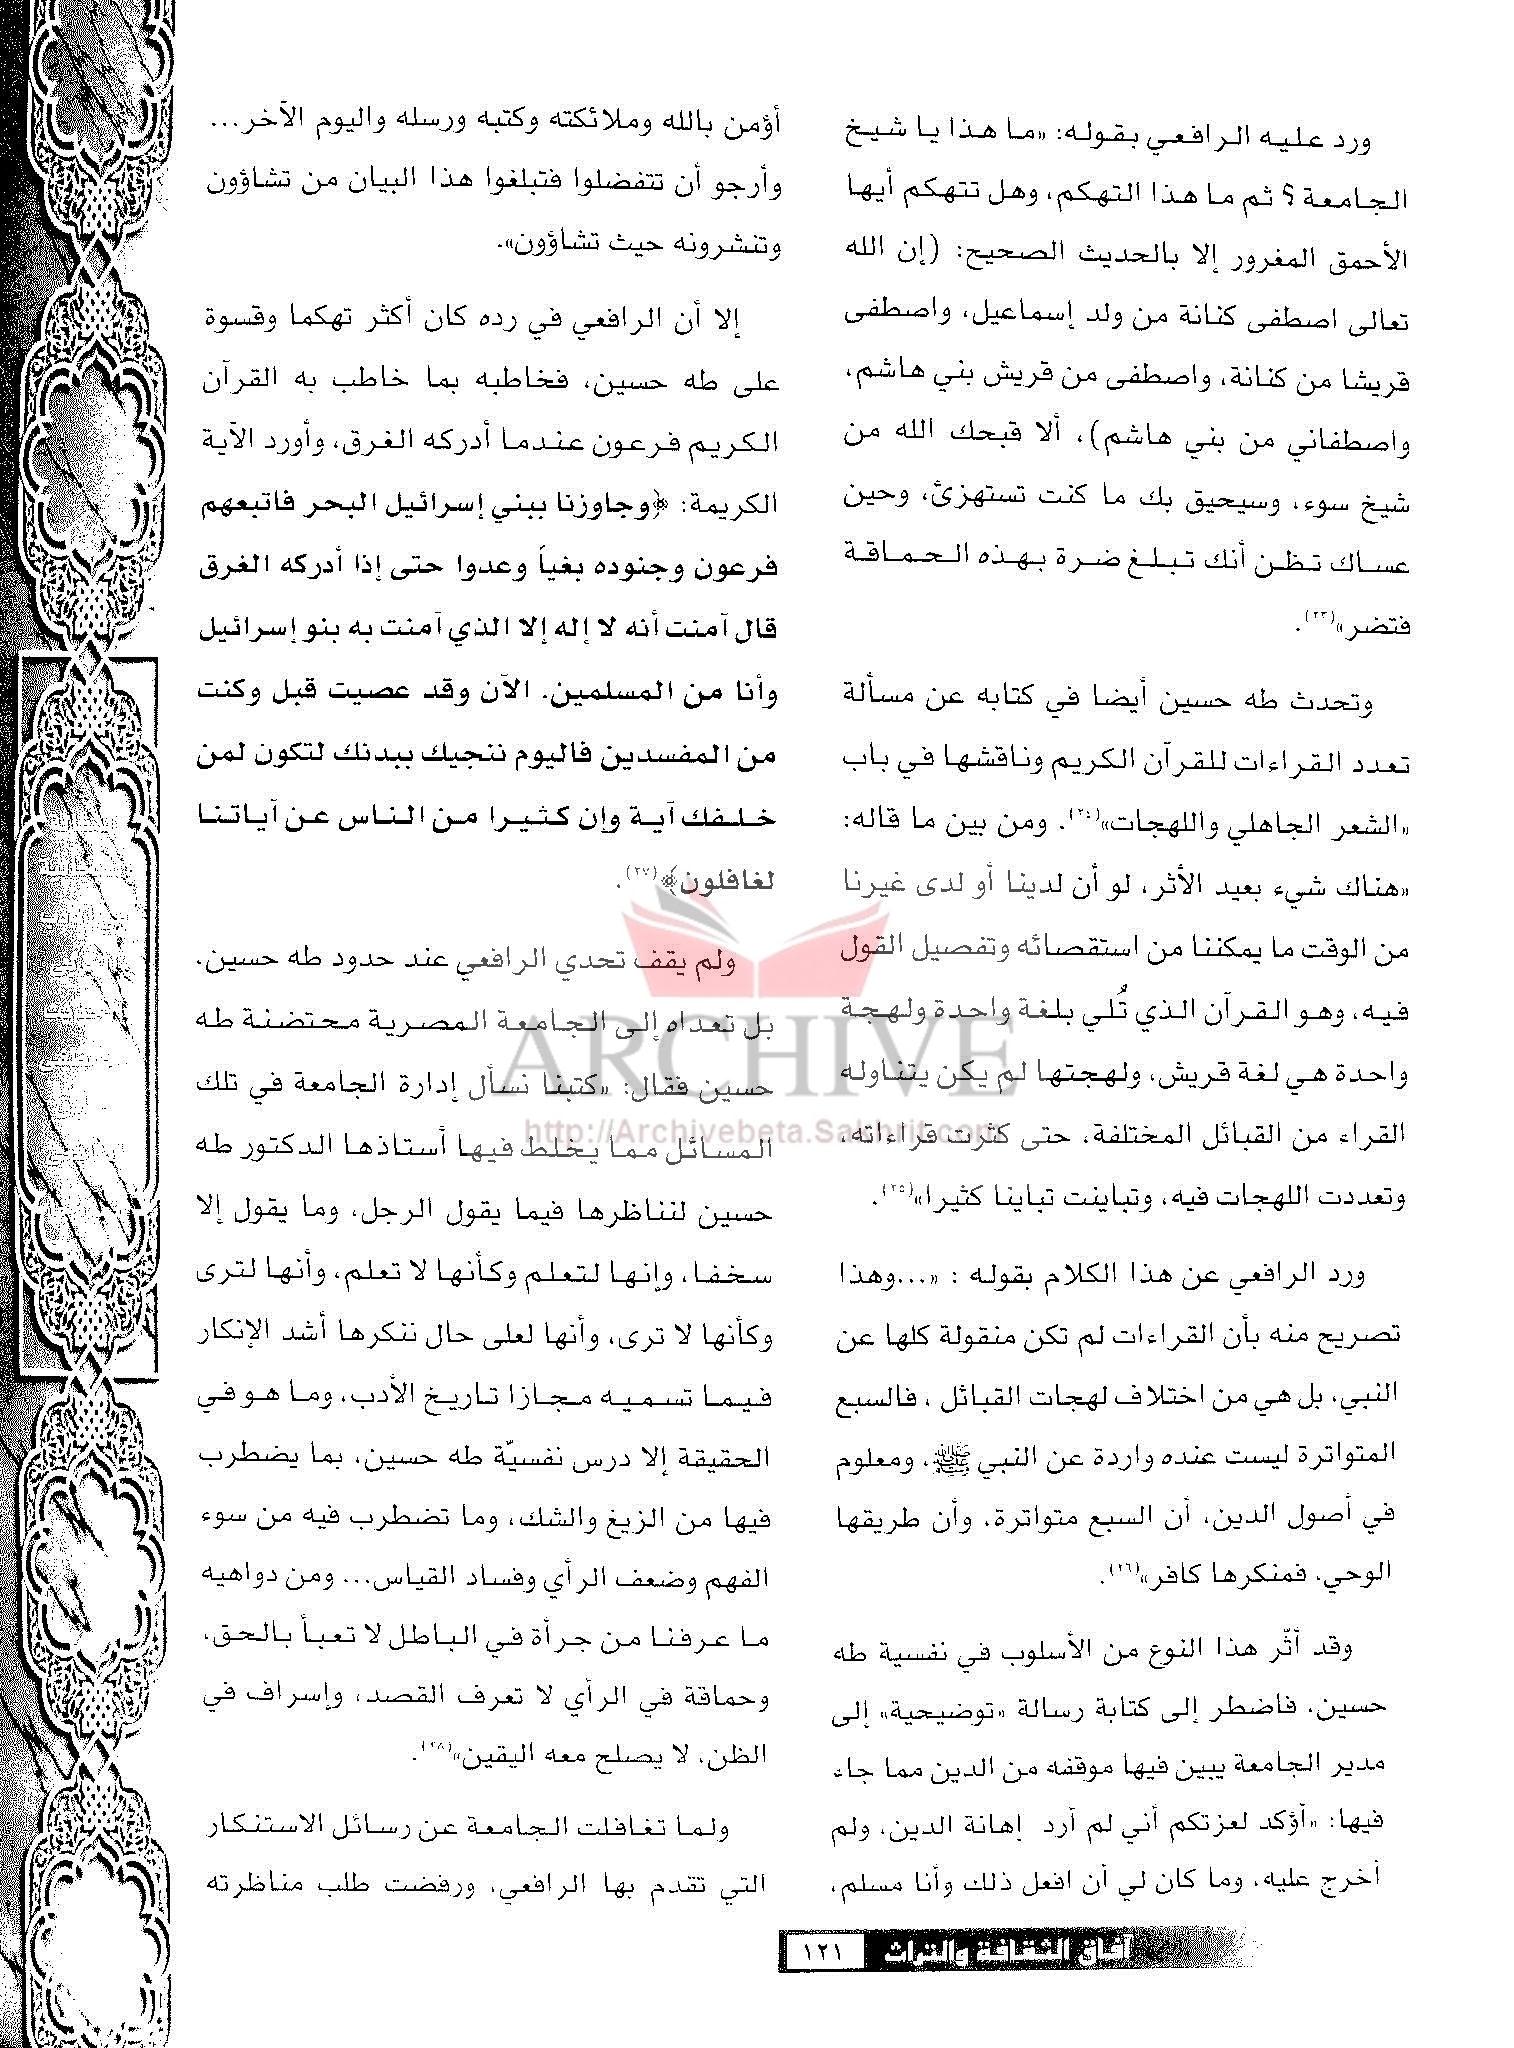 ورد عليه الرافعي بقوله: «ما هذا يا شيخ
الجامعة؟ ثم ما هذا التهكم، وهل تتهكم أيها
الأحمق المغرور إلا بالحديث الصحيح: (إن الله
تعالى اصطفى كنانة من ولد إسماعيل، واصطفى
قريشا من كنانة، واصطفى من قريش بني هاشم،
واصطفاني من بني هاشم)، ألا قبحك الله من
شيخ سوء، وسيحيق بك ما كنت تستهزئ، وحين
عساك تظن أنك تبلغ ضرة بهذه الحماقة
فتضر»(٢٣).
وتحدث طه حسين أيضا في كتابه عن مسألة
تعدد القراءات للقرآن الكريم وناقشها في باب
«الشعر الجاهلي واللهجات»(٢٤). ومن بين ما قاله:
«هناك شيء بعيد الأثر، لو أن لدينا أو لدى غيرنا
من الوقت ما يمكننا من استقصائه وتفصيل القول
فيه، وهو القرآن الذي تُلي بلغة واحدة ولهجة
واحدة هي لغة قريش، ولهجتها لم يكن يتناوله
القراء من القبائل المختلفة، حتى كثرت قراءاته،
وتعددت اللهجات فيه، وتباينت تباينا كثيرا»(٢٥).
ورد الرافعي عن هذا الكلام بقوله : «...وهذا
تصريح منه بأن القراءات لم تكن منقولة كلها عن
النبي، بل هي من اختلاف لهجات القبائل ، فالسبع
المتواترة ليست عنده واردة عن النبي ﷺ، ومعلوم
في أصول الدين، أن السبع متواترة، وأن طريقها
الوحي، فمنكرها كافر»(٢٦).
وقد أثّر هذا النوع من الأسلوب في نفسية طه
حسين، فاضطر إلى كتابة رسالة «توضيحية» إلى
مدير الجامعة يبين فيها موقفه من الدين مما جاء
فيها: «أؤكد لعزتكم أني لم أرد إهانة الدين، ولم
أخرج عليه، وما كان لي أن افعل ذلك وأنا مسلم،
أؤمن بالله وملائكته وكتبه ورسله واليوم الآخر...
وأرجو أن تتفضلوا فتبلغوا هذا البيان من تشاؤون
وتنشرونه حيث تشاؤون».
إلا أن الرافعي في رده كان أكثر تهكما وقسوة
على طه حسين، فخاطبه بما خاطب به القرآن
الكريم فرعون عندما أدركه الغرق، وأورد الآية
الكريمة: ﴿وجاوزنا ببني إسرائيل البحر فاتبعهم
فرعون وجنوده بغياً وعدوا حتى إذا أدركه الغرق
قال آمنت أنه لا إله إلا الذي آمنت به بنو إسرائيل
وأنا من المسلمين. الآن وقد عصيت قبل وكنت
من المفسدين فاليوم ننجيك ببدنك لتكون لمن
خلفك آية وإن كثيرا من الناس عن آياتنا
لغافلون﴾(٢٧).
ولم يقف تحدي الرافعي عند حدود طه حسين،
بل تعداه إلى الجامعة المصرية محتضنة طه
حسين فقال: «كتبنا نسأل إدارة الجامعة في تلك
المسائل مما يخلط فيها أستاذها الدكتور طه
حسين لنناظرها فيما يقول الرجل، وما يقول إلا
سخفا، وإنها لتعلم وكأنها لا تعلم، وأنها لترى
وكأنها لا ترى، وأنها لعلى حال ننكرها أشد الإنكار
فيما تسميه مجازا تاريخ الأدب، وما هو في
الحقيقة إلا درس نفسيّة طه حسين، بما يضطرب
فيها من الزيغ والشك، وما تضطرب فيه من سوء
الفهم وضعف الرأي وفساد القياس... ومن دواهيه
ما عرفنا من جرأة في الباطل لا تعبأ بالحق،
وحماقة في الرأي لا تعرف القصد، وإسراف في
الظن، لا يصلح معه اليقين»(٢٨).
ولما تغافلت الجامعة عن رسائل الاستنكار
التي تقدم بها الرافعي، ورفضت طلب مناظرته
ARCHIVE
http://Archivebeta.Sakhrit.com
آفاق الثقافة والتراث ١٢١